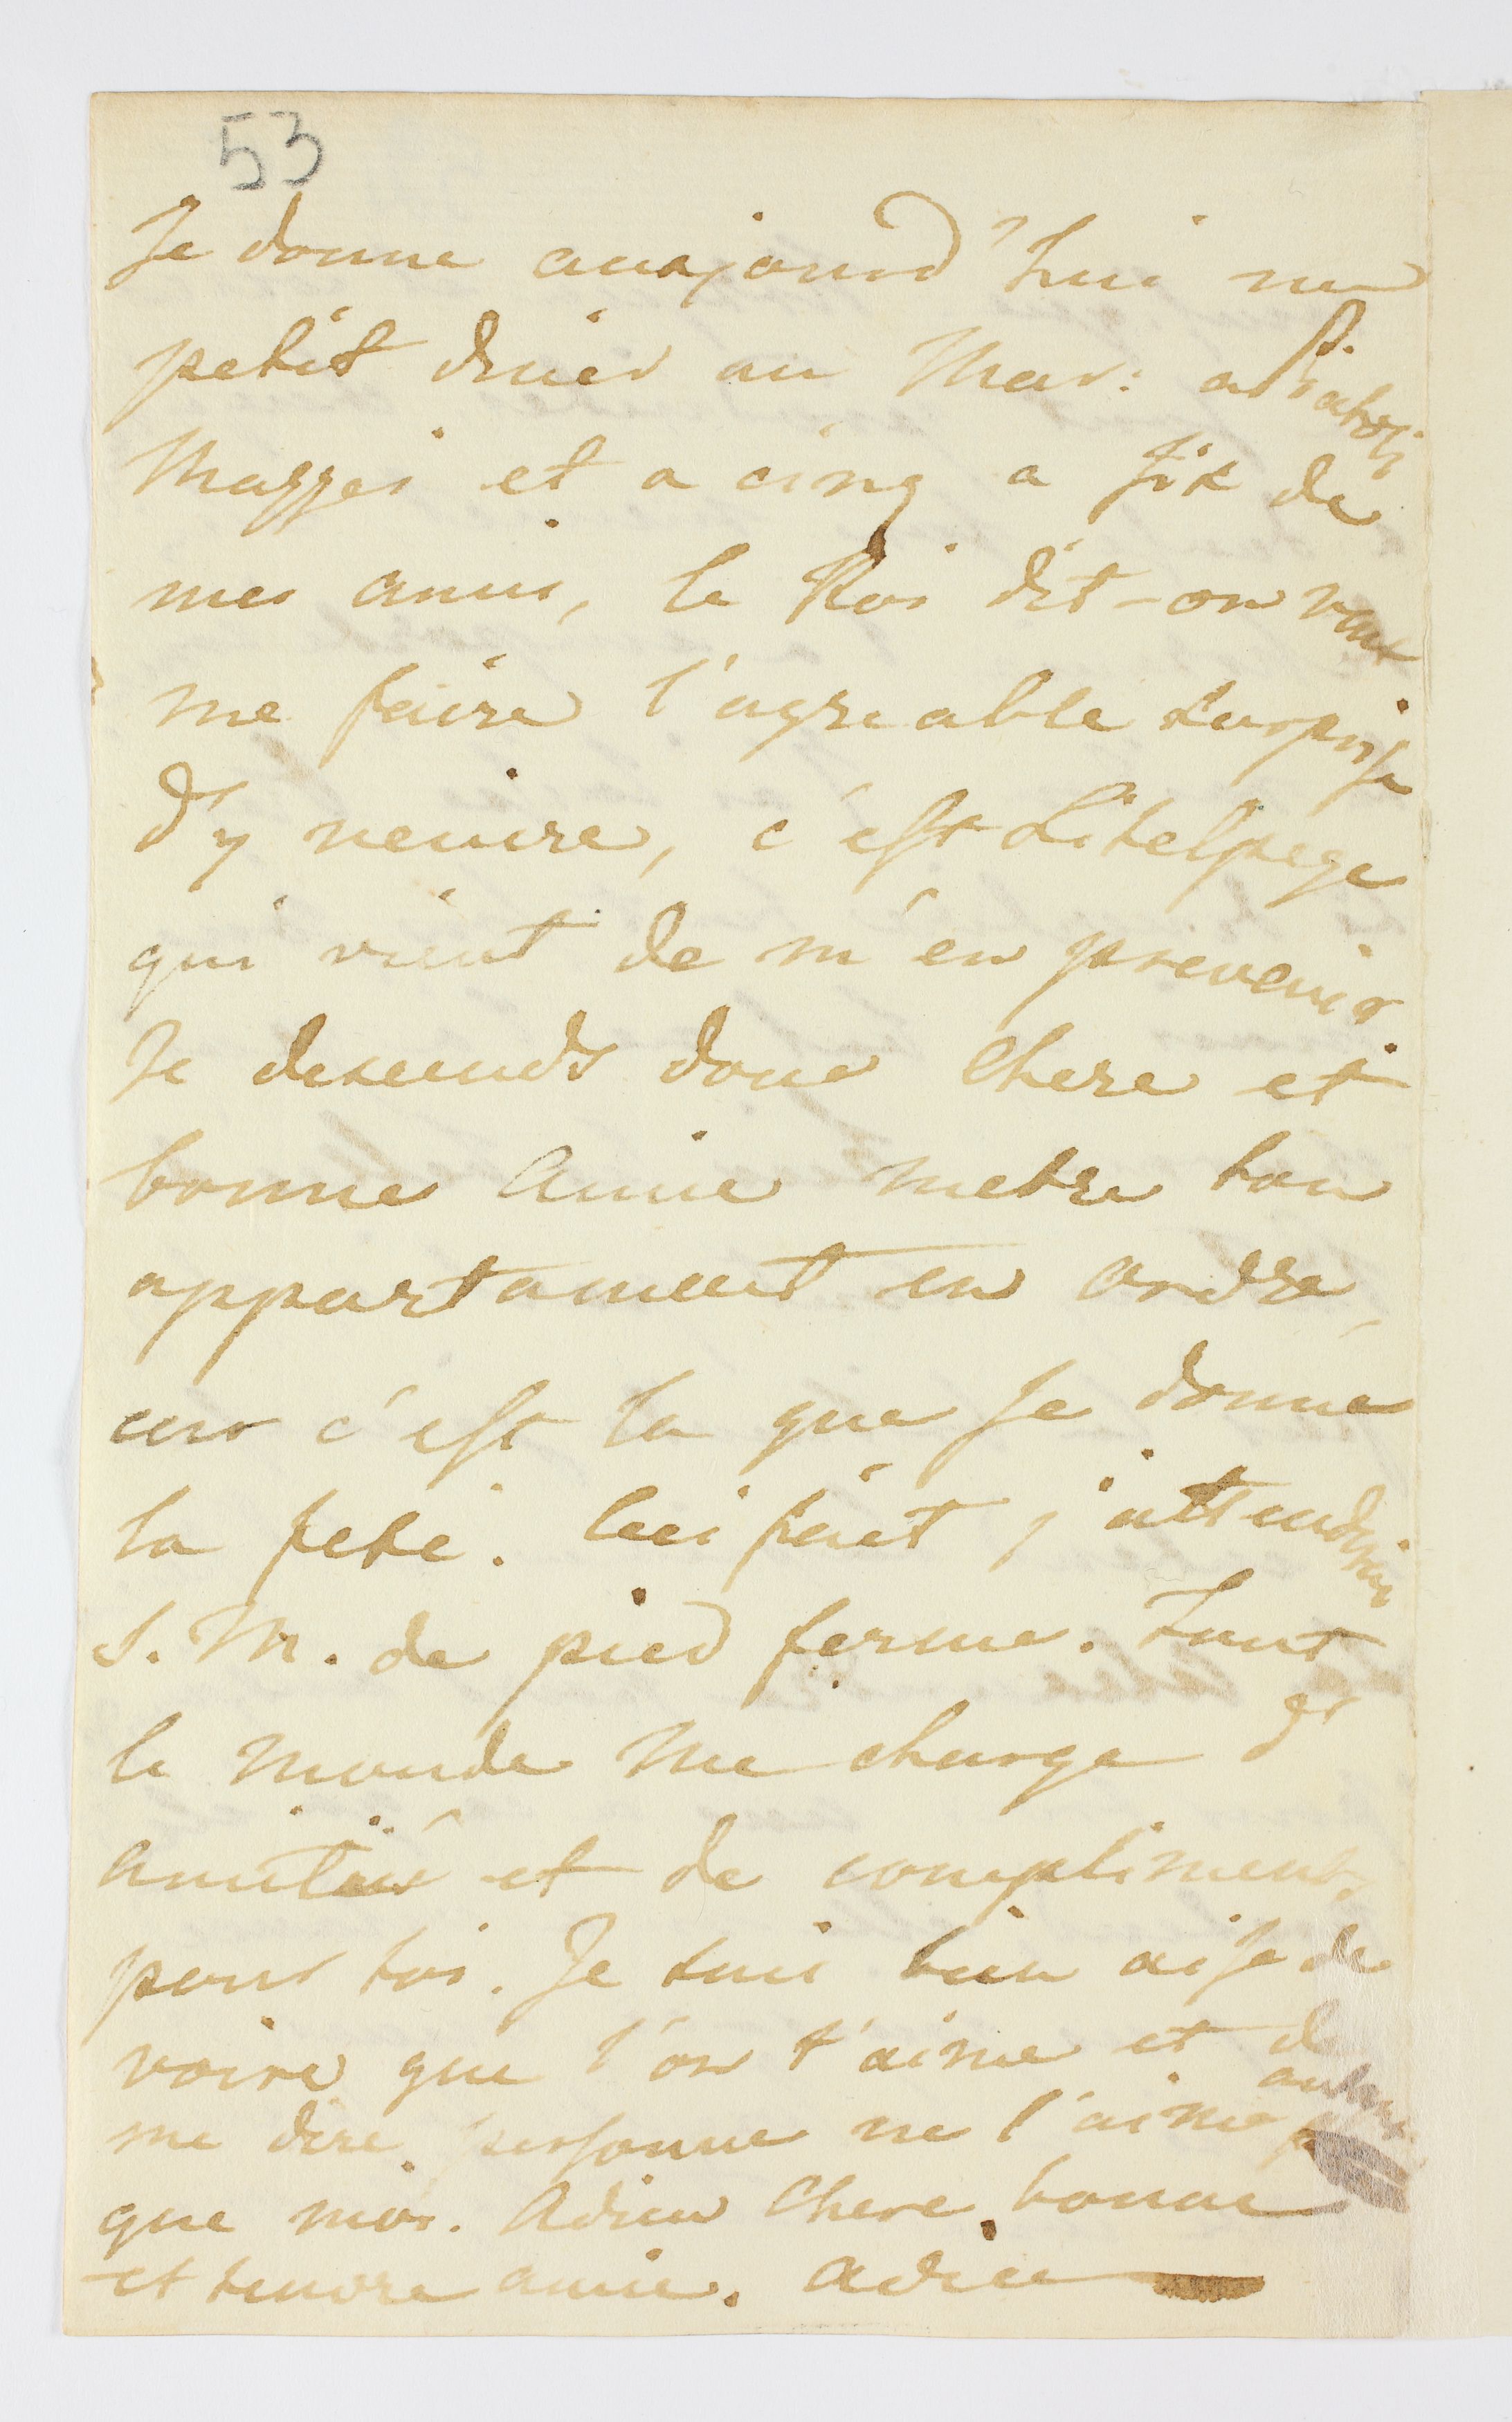 53
Je donne auajourd'hui un
petit diner au Mar: a Piatoli
Mazzei et a cinq a six de
mes amis, le Roi dit-on veut
me faire l'agreable surprise
d'y venire, c'est Litelpege
qui vient de m'en prevenir
Je descends donc Chere et
bonne Amie metre ton
appartament en ordre,
car c'est la que Je donne
la fete. Ceci fait j'attendrai
S. M. de pied ferme. Tout
le monde me charge d'
amitiés et de compliments
pour toi. Je suis bien aise de
voire que l'on t'aime et de
me dire personne ne l'aime autant
que moi. Adieu Chere, bonne
et tendre amie. Adieu